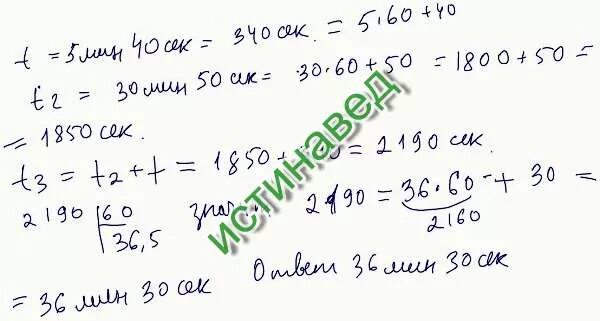 t = 5 мин 40 сек = 340 сек. = 5·60+40
t2 = 30 мин 50 сек = 30·60+50 = 1800+50 =
= 1850 сек.
t3 = t2 + t = 1850 + = 2190 сек.
2190 | 60 2190 = 36·60 + 30 =
36,5 2160
= 36 мин 30 сек Ответ 36 мин 30 сек
истинавед